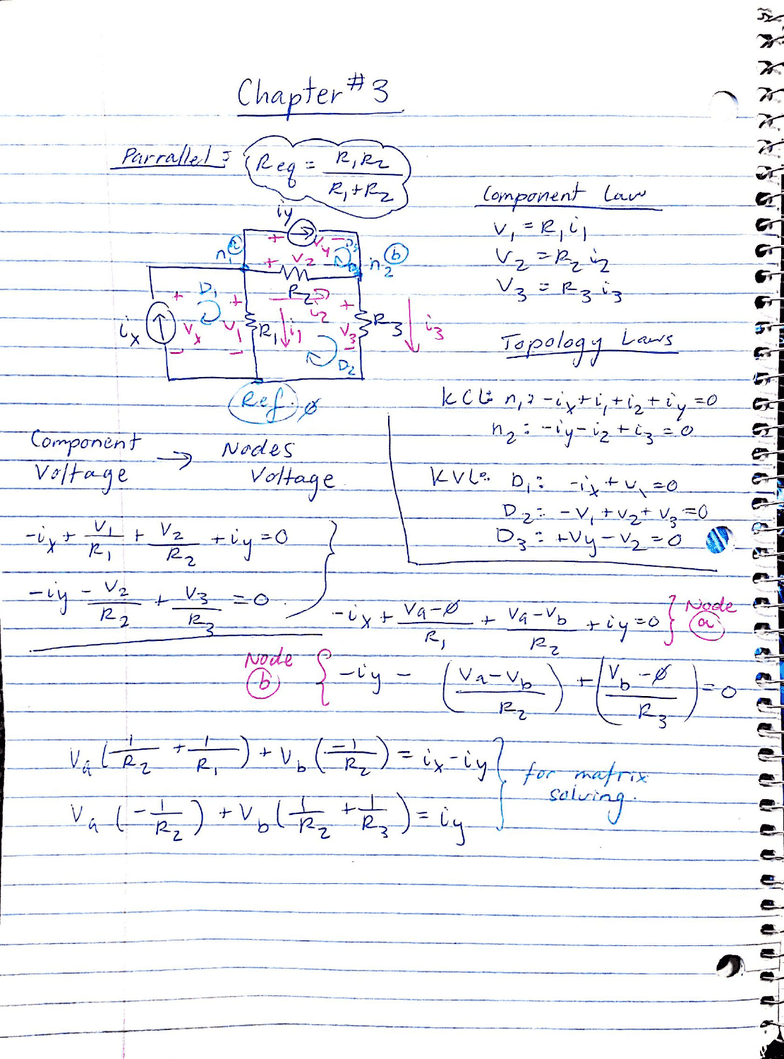 Chapter #3
Parrallel: Req = R₁R₂ / (R₁+R₂)
Component Law
V₁ = R₁i₁
V₂ = R₂i₂
V₃ = R₃i₃
iy
+ Vy − D₃
n₁ (a) + V₂ − n₂ (b)
R₂ i₂
ix + Vx − D₁ + V₁ − R₁ i₁ + V₃ − R₃ i₃
D₂
Ref. ∅
Topology Laws
KCL: n₁: -ix+i₁+i₂+iy=0
n₂: -iy-i₂+i₃=0
KVL: D₁: -ix+V₁=0
D₂: -V₁+V₂+V₃=0
D₃: +Vy-V₂=0
Component Voltage → Nodes Voltage
-ix + V₁/R₁ + V₂/R₂ + iy=0
-iy - V₂/R₂ + V₃/R₃ = 0
-ix + (Va-∅)/R₁ + (Va-Vb)/R₂ + iy=0 } Node (a)
Node (b) { -iy - ((Va-Vb)/R₂) + ((Vb-∅)/R₃) = 0
Va(1/R₂ + 1/R₁) + Vb(-1/R₂) = ix-iy
Va(-1/R₂) + Vb(1/R₂ + 1/R₃) = iy
for matrix
solving.